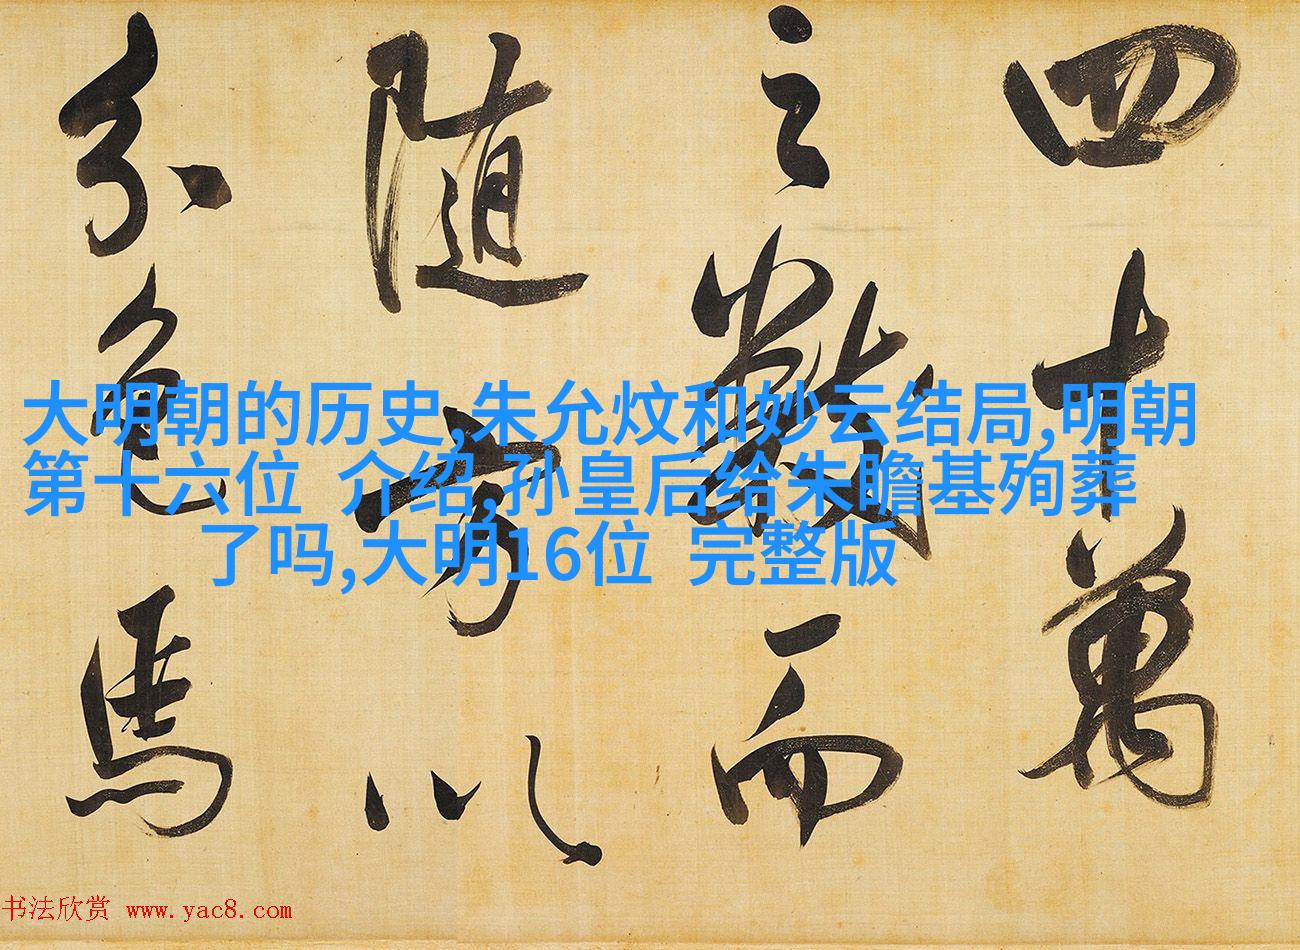 四十萬
之數而
隨方以
分色馬
大明朝的历史,朱允炆和妙云结局,明朝
第十六位 介绍,孙皇后给朱瞻基殉葬
了吗,大明16位 完整版
书法欣赏 www.yac8.com